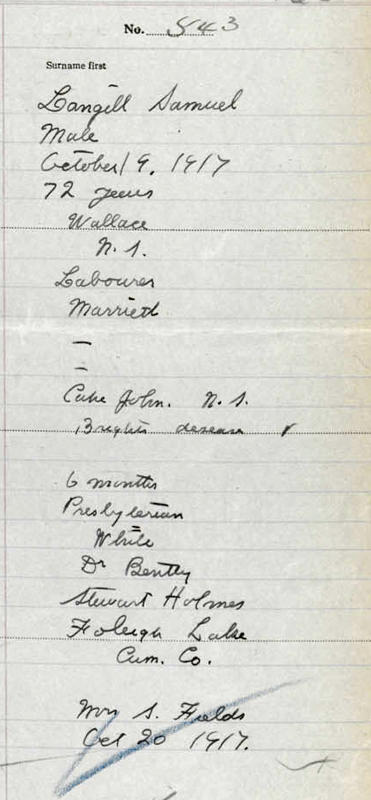 No. 843
Surname first
Langill Samuel
Male
October 19, 1917
72 years
Wallace
N. S.
Labourer
Married
—
—
Cape John. N. S.
Brights desease
6 months
Presbyterian
White
Dr Bentley
Stewart Holmes
Foleigh Lake
Cum. Co.
S. Fields
Oct 20 1917.